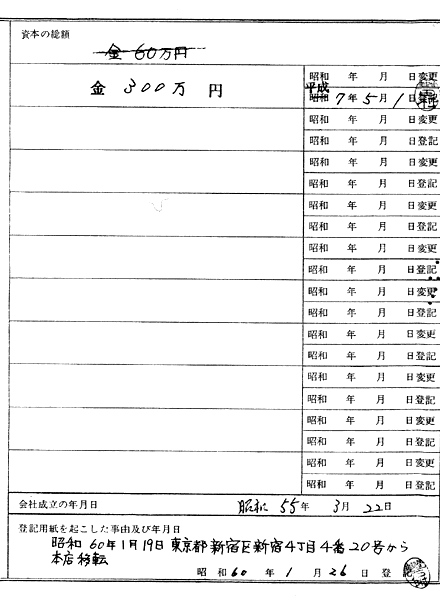 資本の総額
金 60万円
金 300万 円
昭和 年 月 日変更
平成
昭和 7年 5月 1日登記
昭和 年 月 日変更
昭和 年 月 日登記
昭和 年 月 日変更
昭和 年 月 日登記
昭和 年 月 日変更
昭和 年 月 日登記
昭和 年 月 日変更
昭和 年 月 日登記
昭和 年 月 日変更
昭和 年 月 日登記
昭和 年 月 日変更
昭和 年 月 日登記
昭和 年 月 日変更
昭和 年 月 日登記
昭和 年 月 日変更
昭和 年 月 日登記
昭和 年 月 日変更
昭和 年 月 日登記
会社成立の年月日 昭和 55年 3月 22日
登記用紙を起こした事由及び年月日
昭和 60年1月19日 東京都新宿区新宿4丁目4番20号から
本店移転
昭和60年 1月 26日 登記